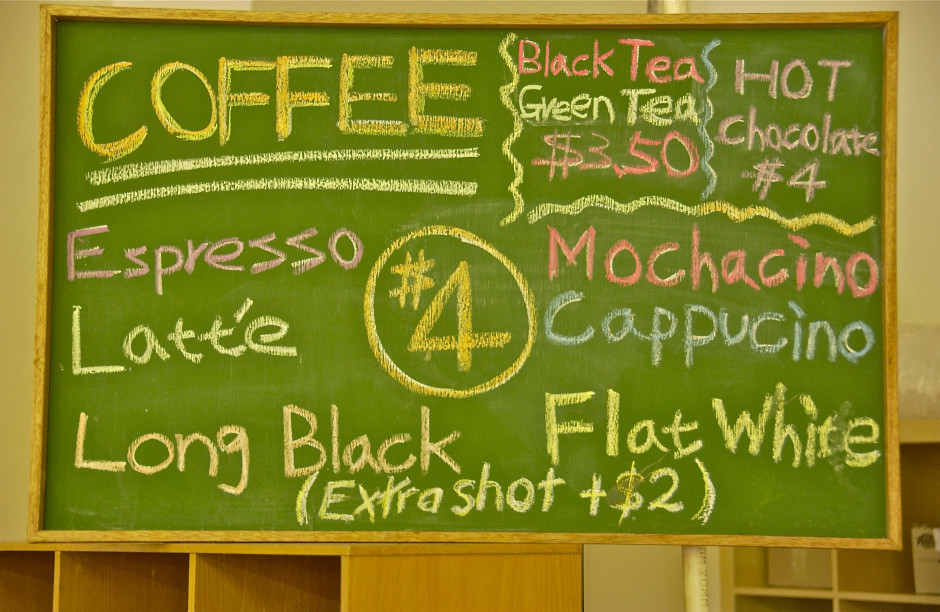 COFFEE
Black Tea
Green Tea
$3.50
HOT
Chocolate
#4
Espresso
Latté
#4
Mochacino
Cappucino
Long Black
Flat White
(Extra shot +$2)